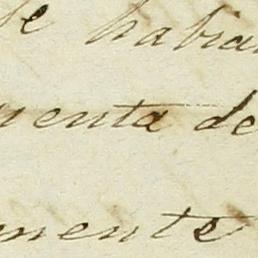 se habia
uenta de
mente